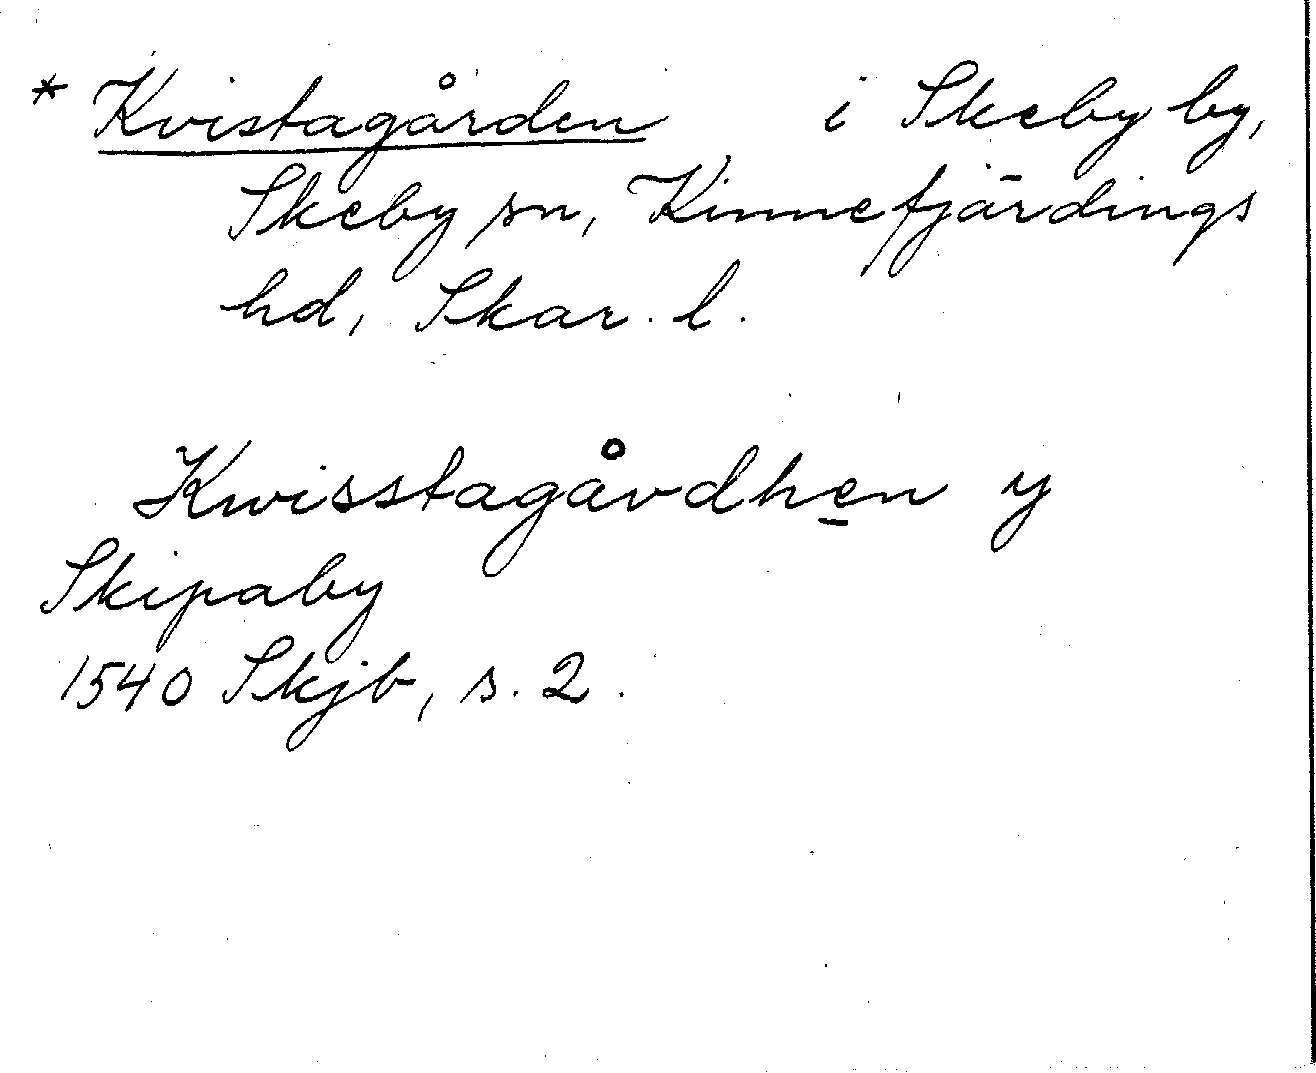 * Kvistagården i Skeby by,
Skeby sn, Kinnefjärdings
hd, Skar. l.
Kwisstagårdhen y
Skipaby
1540 Skjb, s. 2.